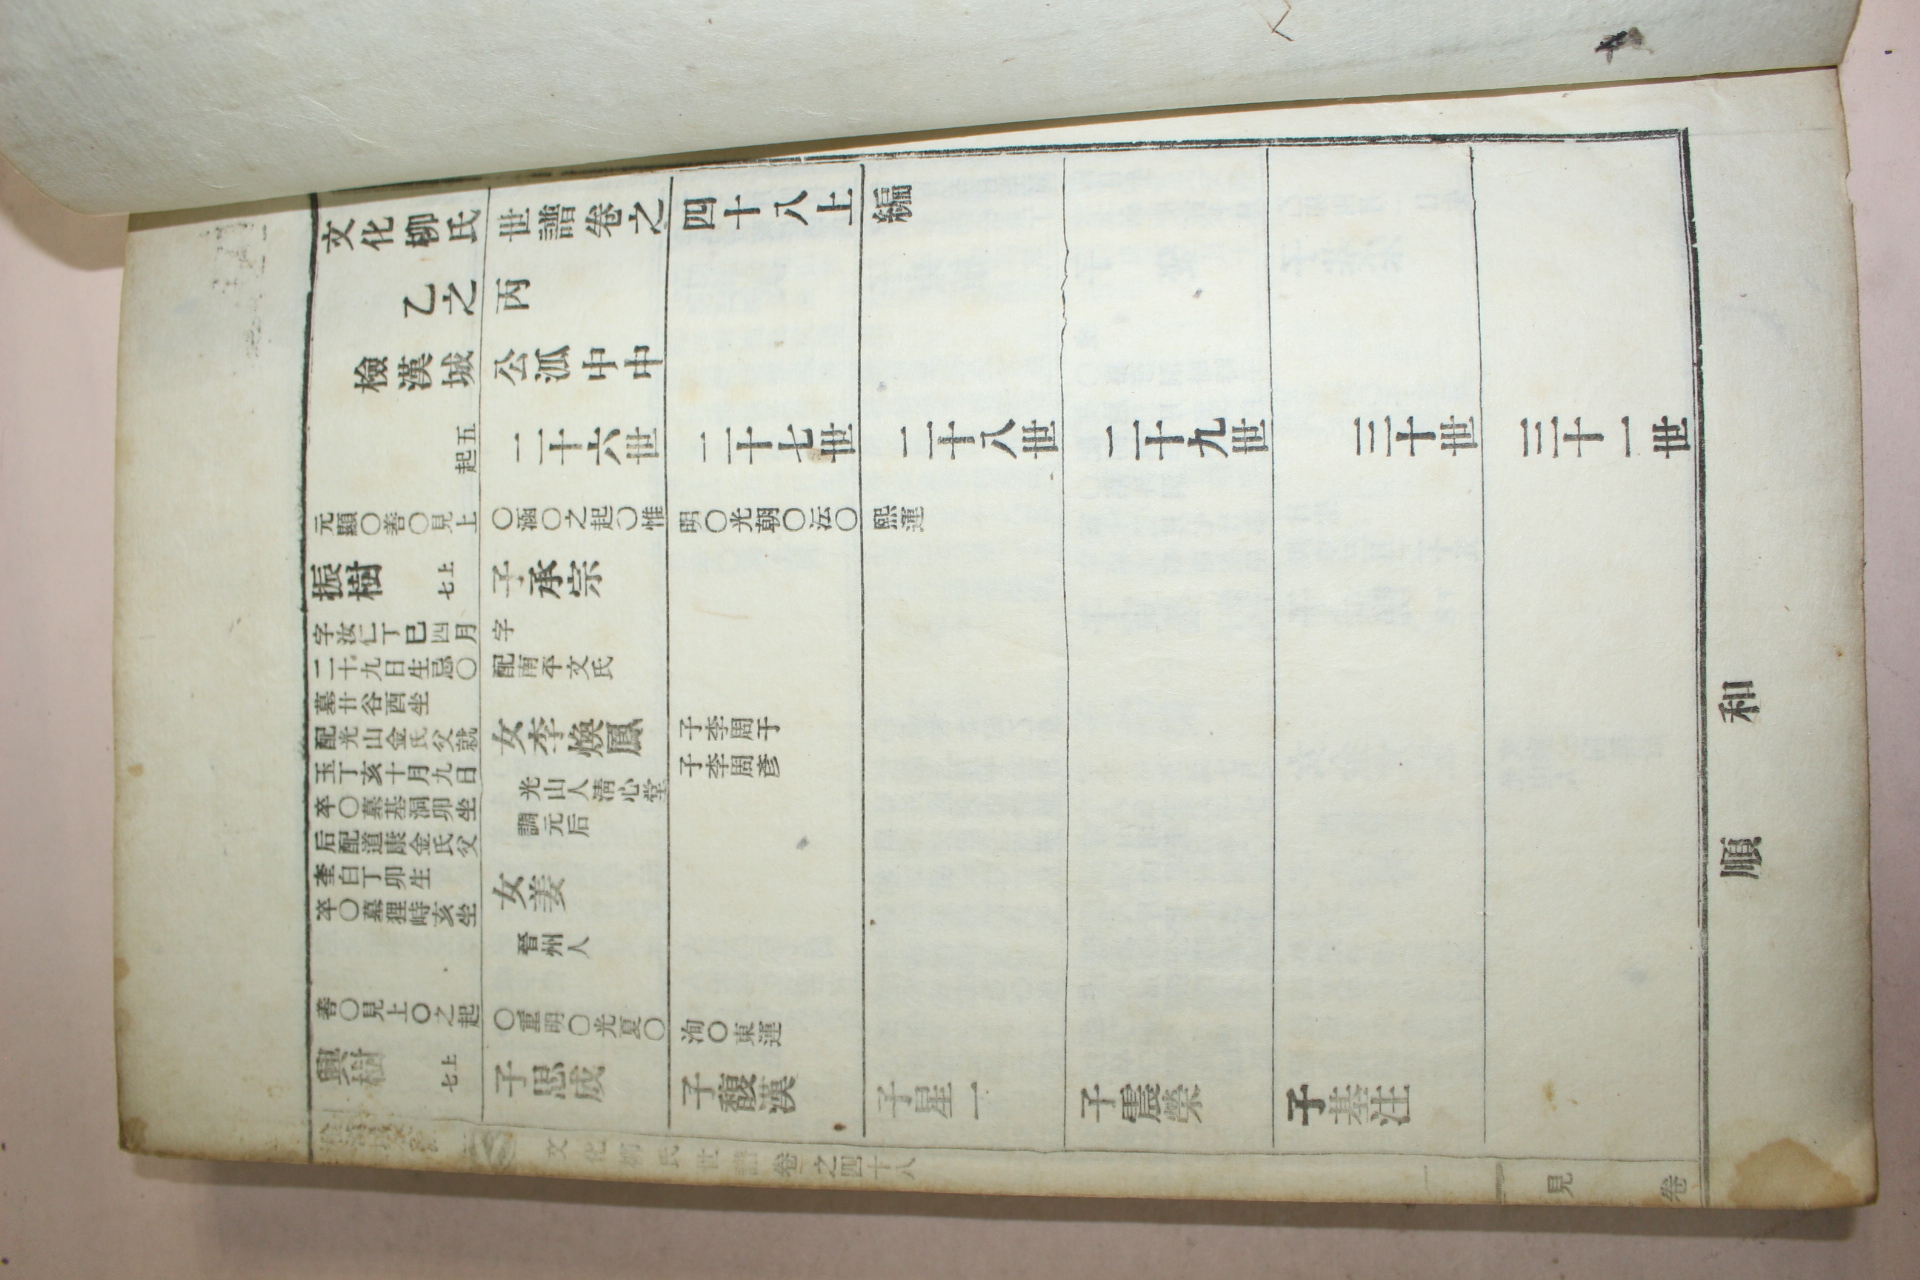 和順
文化柳氏世譜卷之四十八上編
乙之丙
檢漢城公派中中
起五 二十六世 二十七世 二十八世 二十九世 三十世 三十一世
元顯○善○見上○涵○之起○惟明○光朝○沄○熙運
振樹 七上 子承宗
字汝仁丁巳四月 字
二十九日生忌○ 配南平文氏
墓甘谷酉坐
配光山金氏父就 女李煥鳳 子李周于
玉丁亥十月九日 子李周彦
卒○墓基洞卯坐 光山人淸心堂
后配道康金氏父 調元后
奎白丁卯生 女姜
卒○墓狸峙亥坐 晉州人
善○見上○之起○重明○光夏○洵○東運
興樹 七上 子思成 子馥漢 子星一 子震榮 子基注
文化柳氏世譜卷之四十八 一 見 卷